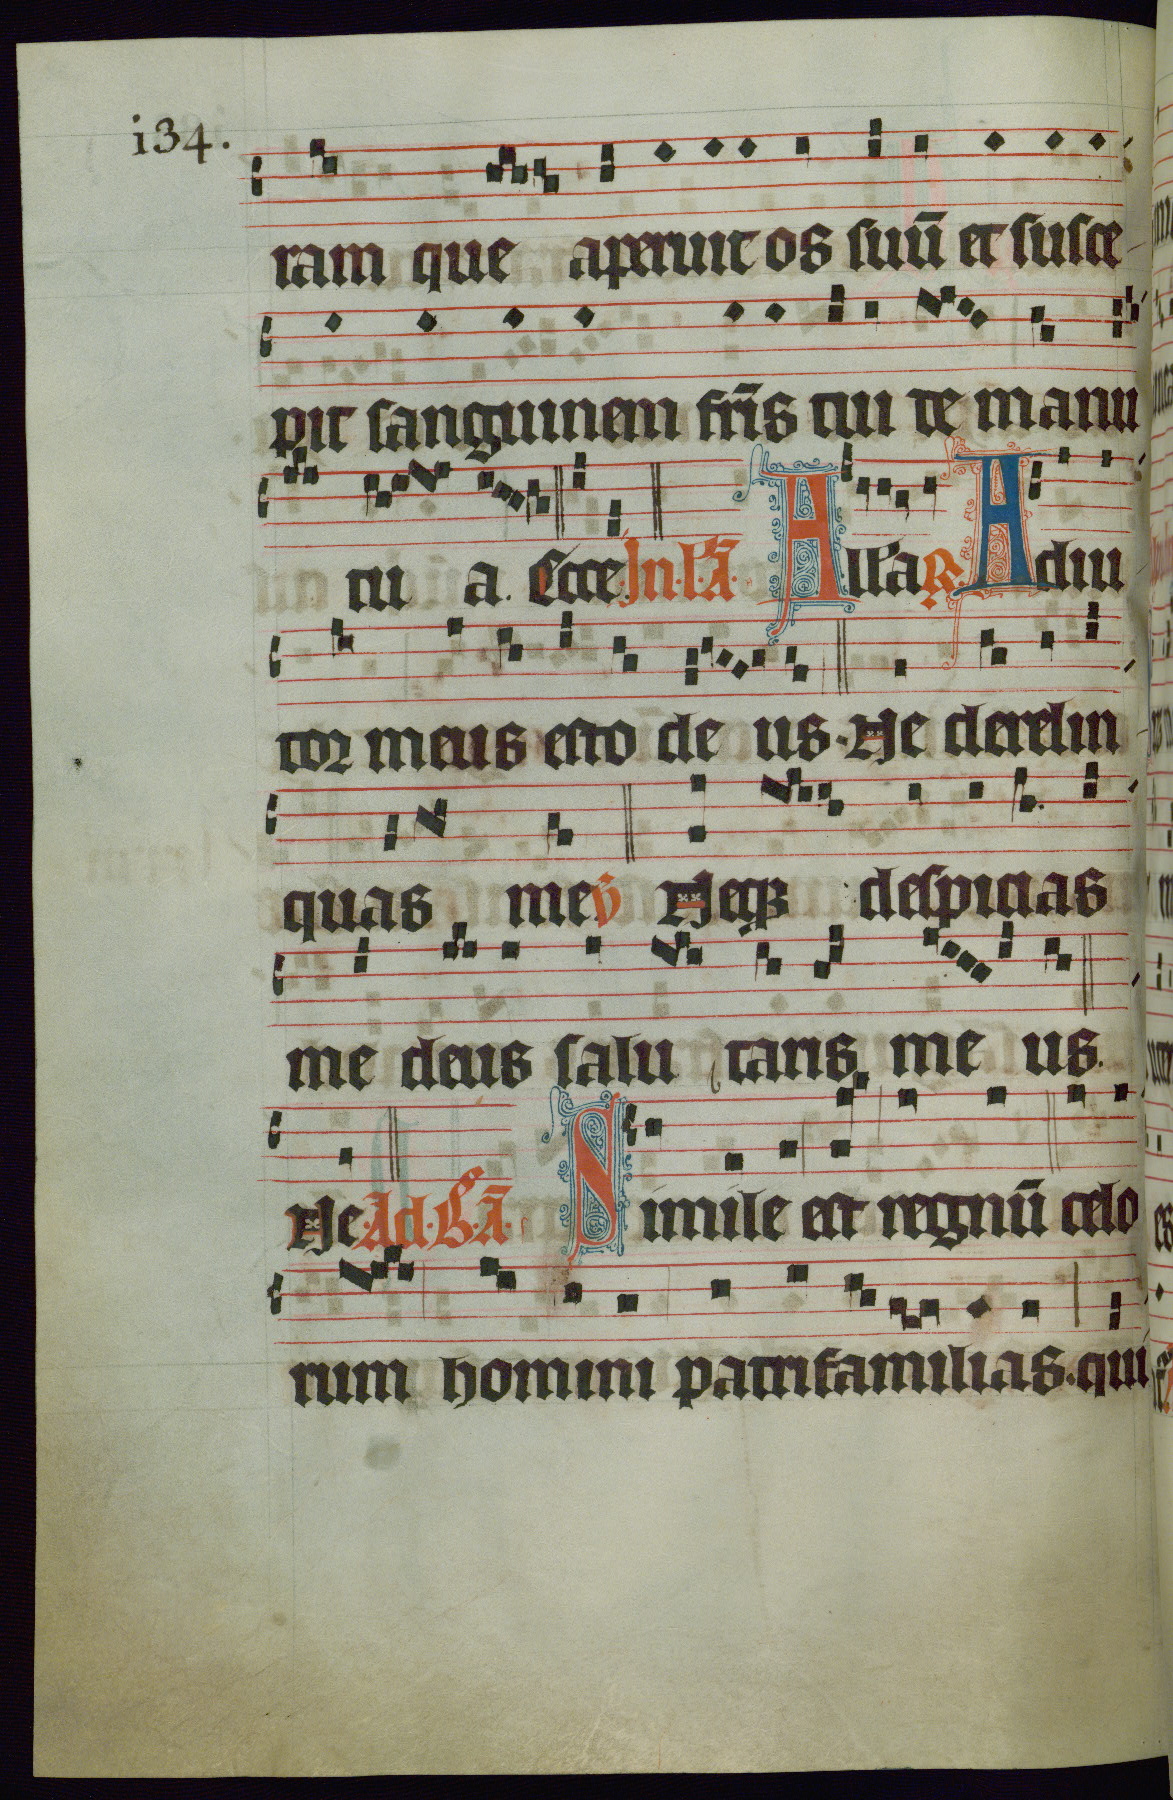 i34.
ram que aperuit os suū et susce
pit sanguinem fr̄is tui de manu
tu a. Ecce In·l·ā· Alia ℟ Adiu
tor meus esto de us. Ne derelin
quas me ℣ Neqз despicias
me deus salu taris me us.
Ne Ad·B·ā· Simile est regnū celo
rum homini patrifamilias. qui